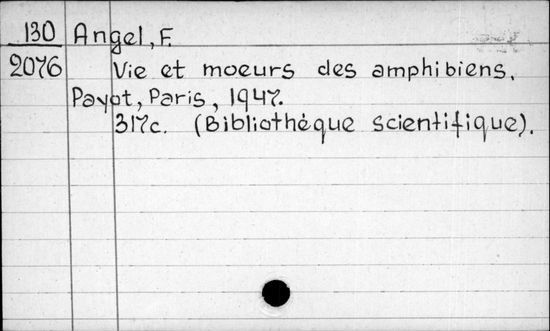 130 Angel, F.
2076 Vie et moeurs des amphibiens.
Payot, Paris, 1947.
317c. (Bibliothèque scientifique).